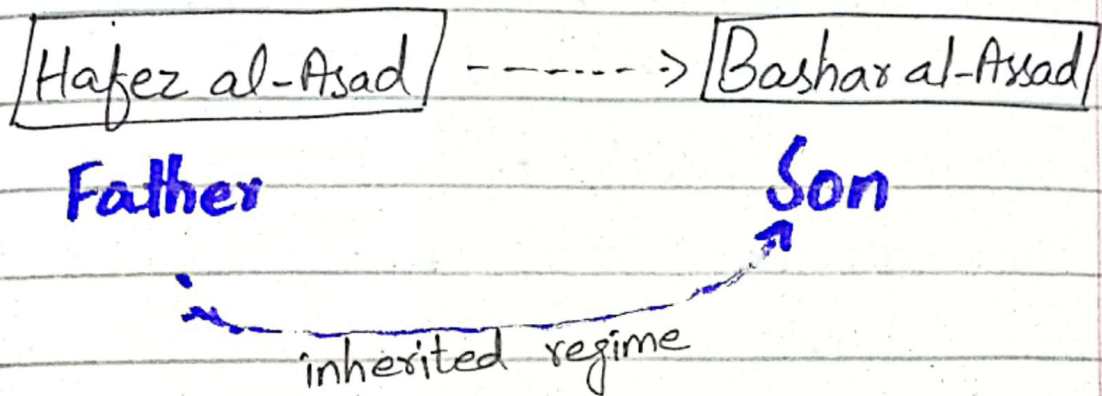 Hafez al-Asad -------> Bashar al-Assad
Father Son
inherited regime